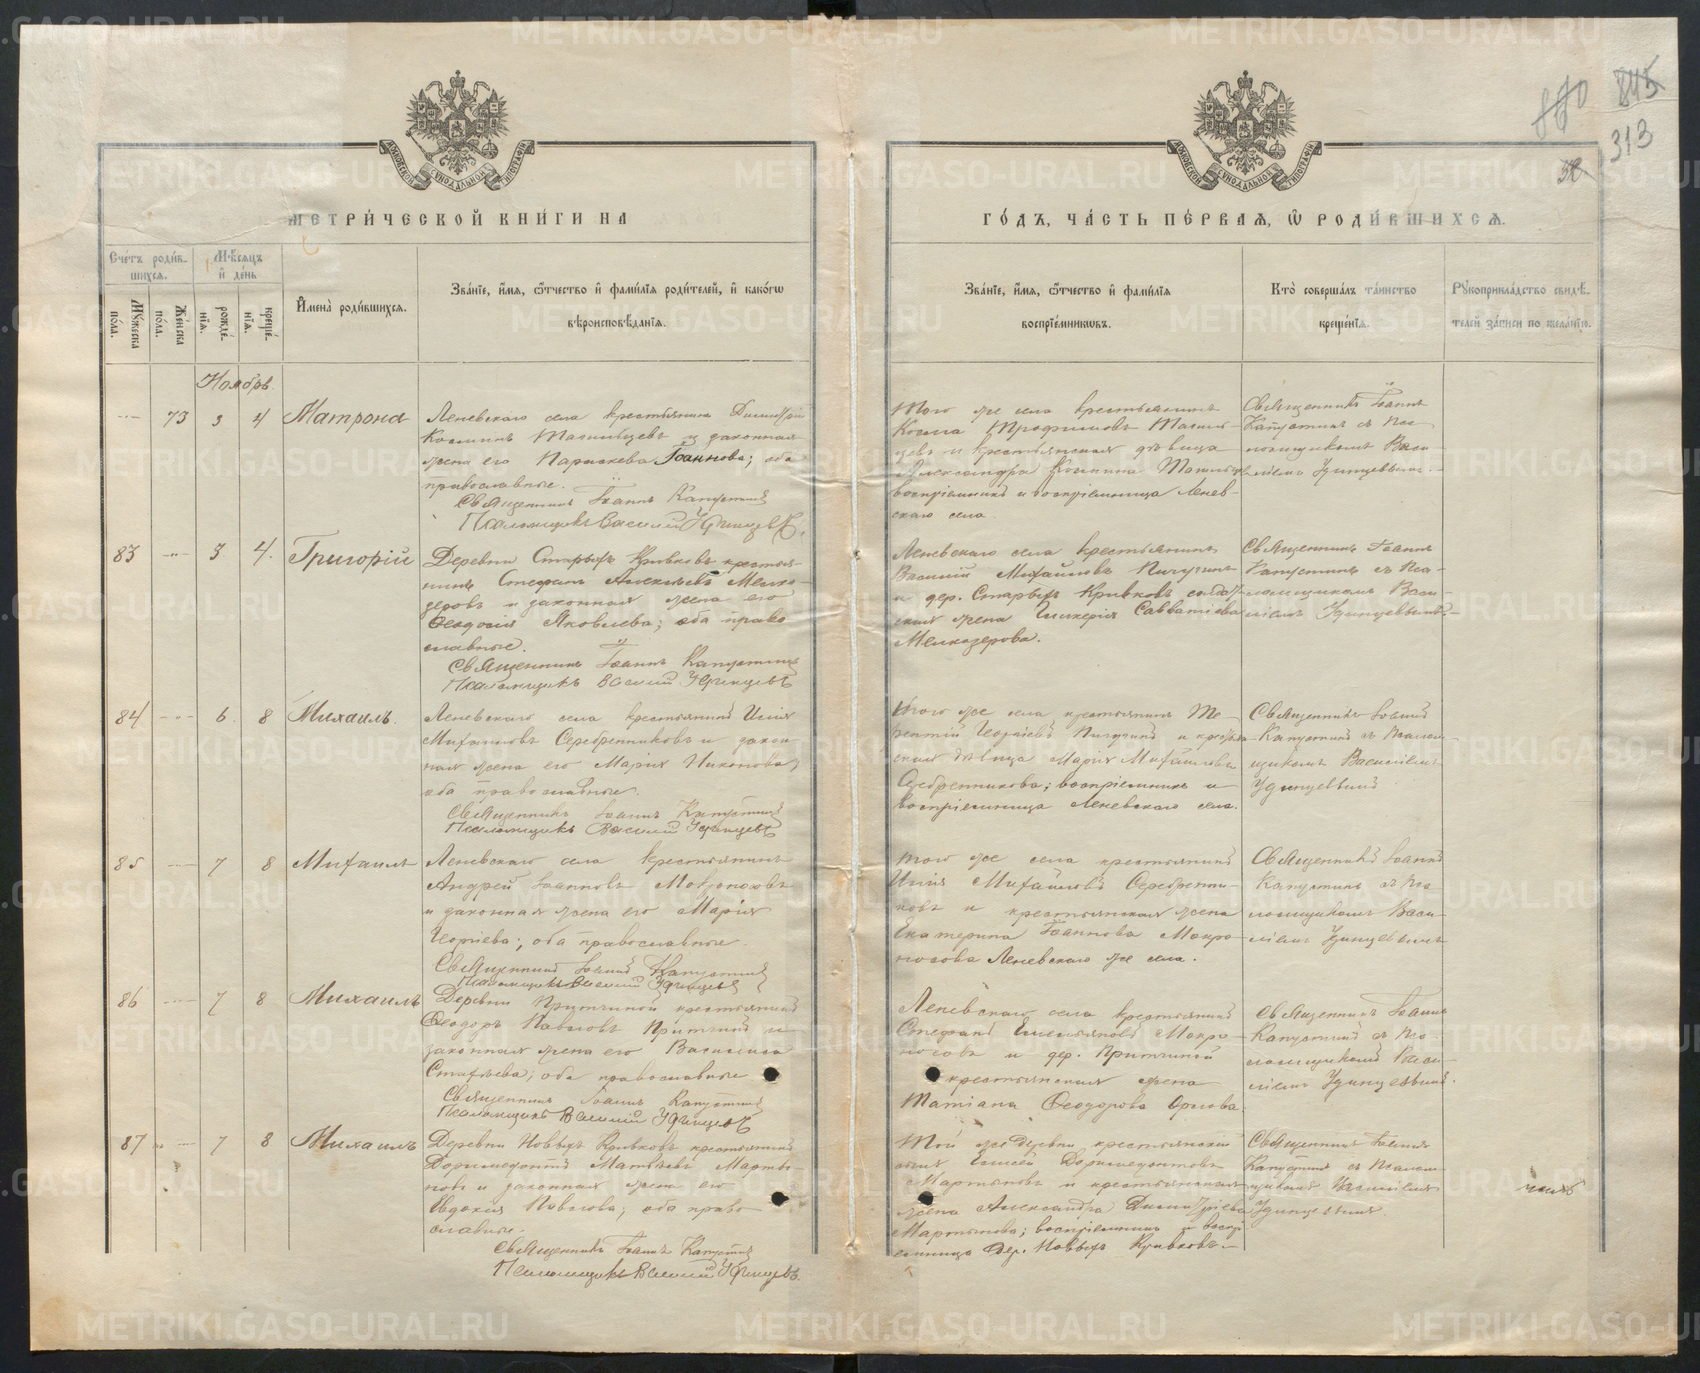 880 845
313
МЕТРИ́ЧЕСКОЙ КНИ́ГИ НА
ГО́ДЪ, ЧА́СТЬ ПЕ́РВАѦ, Ѡ҆ РОДИ́ВШИХСѦ.
Счетъ роди́в-
шихсѧ.
Мѣ́сѧцъ
и҆ де́нь
Мꙋ́жеска
по́ла.
Же́нска
по́ла.
рожде́-
нїѧ.
креще́-
нїѧ.
И҆мена̀ роди́вшихсѧ.
Зва́нїе, и҆́мѧ, ѻ҆́тчество и҆ фами́лїѧ роди́телей, и҆ како́гѡ
вѣроисповѣ́данїѧ.
Зва́нїе, и҆́мѧ, ѻ҆́тчество и҆ фами́лїѧ
воспрїе́мникѡвъ.
Кто̀ соверша́лъ та́инство
креще́нїѧ.
Рꙋкоприкла́дство свидѣ́-
телей за́писи по жела́нїю.
Ноябрь
73 3 4 Матрона
Леневскаго села крестьянинъ Димитрій
Косминъ и законная
жена его Параскева Іоаннова; оба
православные.
Священникъ Іоаннъ Капустинъ
Псаломщикъ Василій Удинцевъ
Того же села крестьянинъ
Косма Трофимовъ
и крестьянская дѣвица
Александра Космина
воспріемникъ и воспріемница Ленев-
скаго села.
Священникъ Іоаннъ
Капустинъ съ Пса-
ломщикомъ Васи-
ліемъ Удинцевымъ.
83 3 4 Григорій
Деревни Старыхъ Кривковъ крестья-
нинъ Стефанъ Алексѣевъ Мелко-
зеровъ и законная жена его
Ѳеодосія Яковлева; оба право
славные.
Священникъ Іоаннъ Капустинъ
Псаломщикъ Василій Удинцевъ
Леневскаго села крестьянинъ
Василій Михайловъ Пичугинъ
и дер. Старыхъ Кривковъ
жена Гликерія Савватіева
Мелкозерова.
Священникъ Іоаннъ
Капустинъ съ Пса-
ломщикомъ Васи-
ліемъ Удинцевымъ.
84 6 8 Михаилъ.
Леневскаго села крестьянинъ Илія
Михаиловъ Серебренниковъ и закон-
ная жена его Марія Никонова;
оба православные.
Священникъ Іоаннъ Капустинъ
Псаломщикъ Василій Удинцевъ
Того же села крестьянинъ Те-
рентій Георгіевъ Пичугинъ и крестьян-
ская дѣвица Марія Михаилова
Серебренникова; воспріемникъ и
воспріемница Леневскаго села.
Священникъ Іоаннъ
Капустинъ съ Псалом-
щикомъ Василіемъ
Удинцевымъ
85 7 8 Михаилъ
Леневскаго села крестьянинъ
Андрей Іоанновъ Мокроносовъ
и законная жена его Марія
Георгіева; оба православные.
Священникъ Іоаннъ Капустинъ
Псаломщикъ Василій Удинцевъ
Того же села крестьянинъ
Илія Михайловъ Серебренни-
ковъ и крестьянская жена
Екатерина Іоаннова Мокро-
носова Леневскаго же села.
Священникъ Іоаннъ
Капустинъ съ Пса-
ломщикомъ Васи-
ліемъ Удинцевымъ
86 7 8 Михаилъ
Деревни Притчиной крестьянинъ
Ѳеодоръ Павловъ Притчинъ и
законная жена его Василиса
оба православные
Священникъ Іоаннъ Капустинъ
Псаломщикъ Василій Удинцевъ
Леневскаго села крестьянинъ
Стефанъ Емельяновъ Мокро-
носовъ и дер. Притчиной
крестьянская жена
Татіана Ѳеодорова Орлова.
Священникъ Іоаннъ
Капустинъ съ Пса-
ломщикомъ Васи-
ліемъ Удинцевымъ.
87 7 8 Михаилъ
Деревни Новыхъ Кривковъ крестьянинъ
Доримедонтъ Матвѣевъ Марты-
новъ и законная жена его
Евдокія Павлова; оба право-
славные.
Священникъ Іоаннъ Капустинъ
Псаломщикъ Василій Удинцевъ.
Той же деревни крестьянскій
сынъ Елисей Доримедонтовъ
Мартыновъ и крестьянская
жена Александра Димитріева
Мартынова; воспріемникъ и воспрі-
емница дер. Новыхъ Кривковъ.
Священникъ Іоаннъ
Капустинъ съ Псалом-
щикомъ Василіемъ
Удинцевымъ.
METRIKI.GASO-URAL.RU